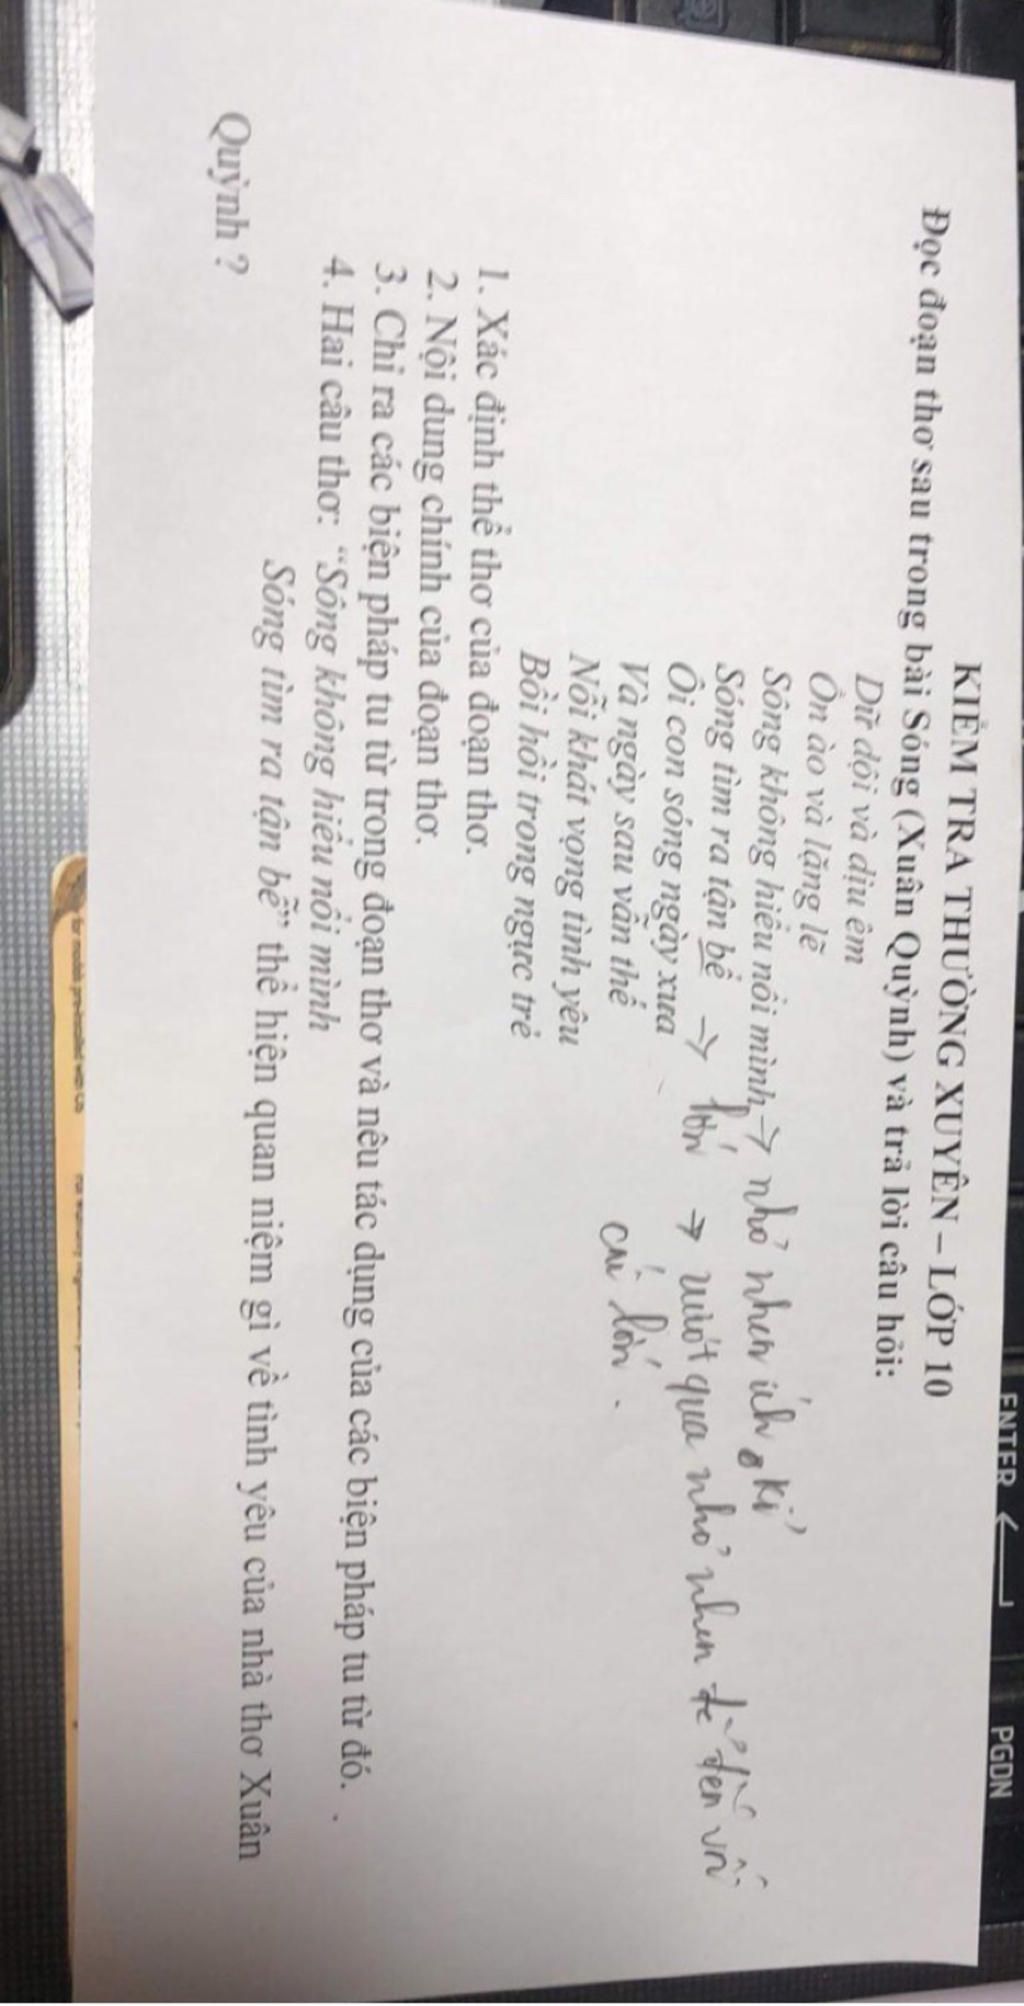 KIỂM TRA THƯỜNG XUYÊN – LỚP 10
Đọc đoạn thơ sau trong bài Sóng (Xuân Quỳnh) và trả lời câu hỏi:
Dữ dội và dịu êm
Ồn ào và lặng lẽ
Sông không hiểu nổi mình → nhỏ nhen ích kỉ
Sóng tìm ra tận bể → lớn → vượt qua nhỏ nhen để đến với
Ôi con sóng ngày xưa
cái lớn.
Và ngày sau vẫn thế
Nỗi khát vọng tình yêu
Bồi hồi trong ngực trẻ
1. Xác định thể thơ của đoạn thơ.
2. Nội dung chính của đoạn thơ.
3. Chỉ ra các biện pháp tu từ trong đoạn thơ và nêu tác dụng của các biện pháp tu từ đó.
4. Hai câu thơ: "Sông không hiểu nổi mình
Sóng tìm ra tận bể" thể hiện quan niệm gì về tình yêu của nhà thơ Xuân
Quỳnh ?
ENTER
PGDN